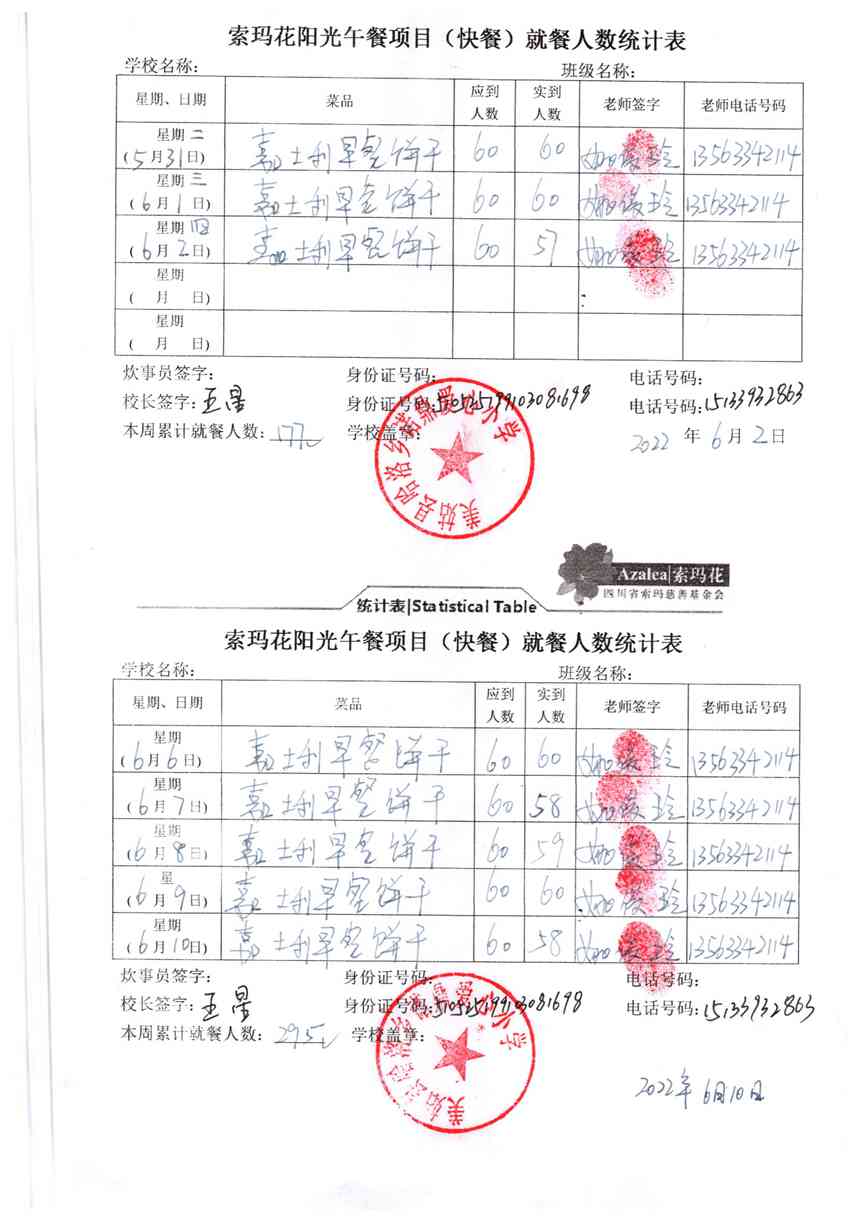 索玛花阳光午餐项目（快餐）就餐人数统计表
学校名称： 班级名称：
星期、日期 菜品 应到人数 实到人数 老师签字 老师电话号码
星期二 (5月31日) 嘉士利早餐饼干 60 60 13563342114
星期三 (6月1日) 嘉士利早餐饼干 60 60 13563342114
星期四 (6月2日) 嘉士利早餐饼干 60 57 13563342114
星期 ( 月 日)
星期 ( 月 日)
炊事员签字： 身份证号码： 电话号码：
校长签字：王星 身份证号码： 电话号码：15133932863
本周累计就餐人数：177人 学校盖章： 2022年6月2日
美姑县哈洛乡诺鼎爱心小学
Azalea|索玛花
四川省索玛慈善基金会
统计表|Statistical Table
索玛花阳光午餐项目（快餐）就餐人数统计表
学校名称： 班级名称：
星期、日期 菜品 应到人数 实到人数 老师签字 老师电话号码
星期 (6月6日) 嘉士利早餐饼干 60 60 13563342114
星期 (6月7日) 嘉士利早餐饼干 60 58 13563342114
星期 (6月8日) 嘉士利早餐饼干 60 59 13563342114
星 (6月9日) 嘉士利早餐饼干 60 60 13563342114
星期 (6月10日) 嘉士利早餐饼干 60 58 13563342114
炊事员签字： 身份证号码： 电话号码：
校长签字：王星 身份证号码： 电话号码：15133932863
本周累计就餐人数：295人 学校盖章：
美姑县哈洛乡诺鼎爱心小学
2022年6月10日